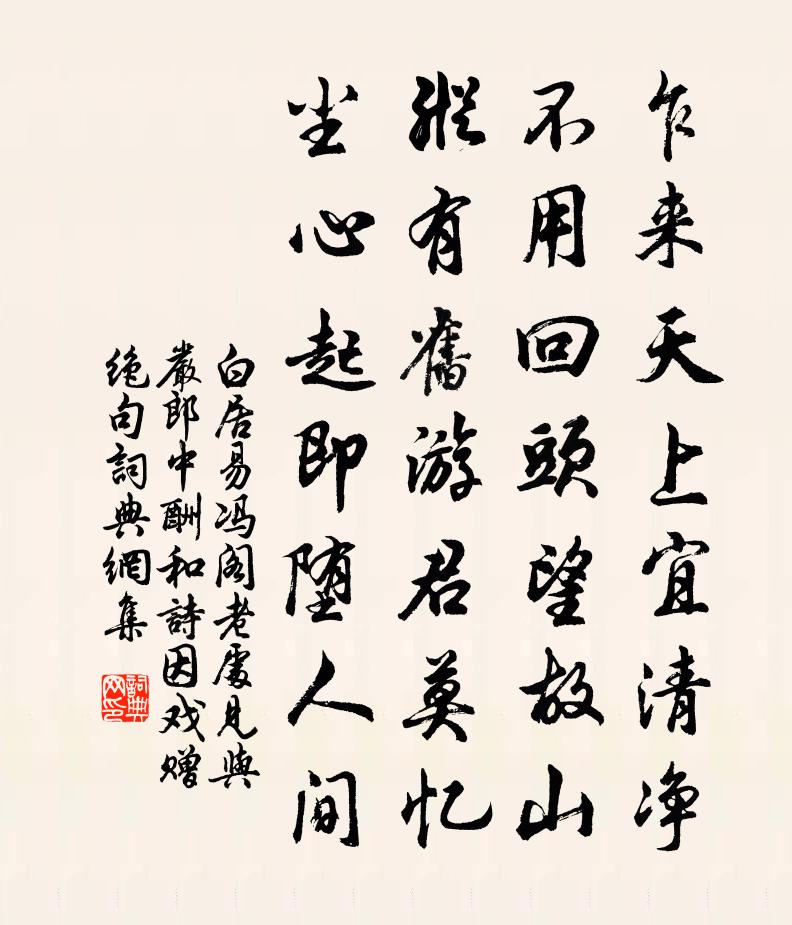 乍来天上宜清净
不用回頭望故山
縱有舊游君莫忆
尘心起即堕人间
白居易冯阁老處见與
嚴郎中酬和詩因戏赠
绝句詞典網集
詞典
网印